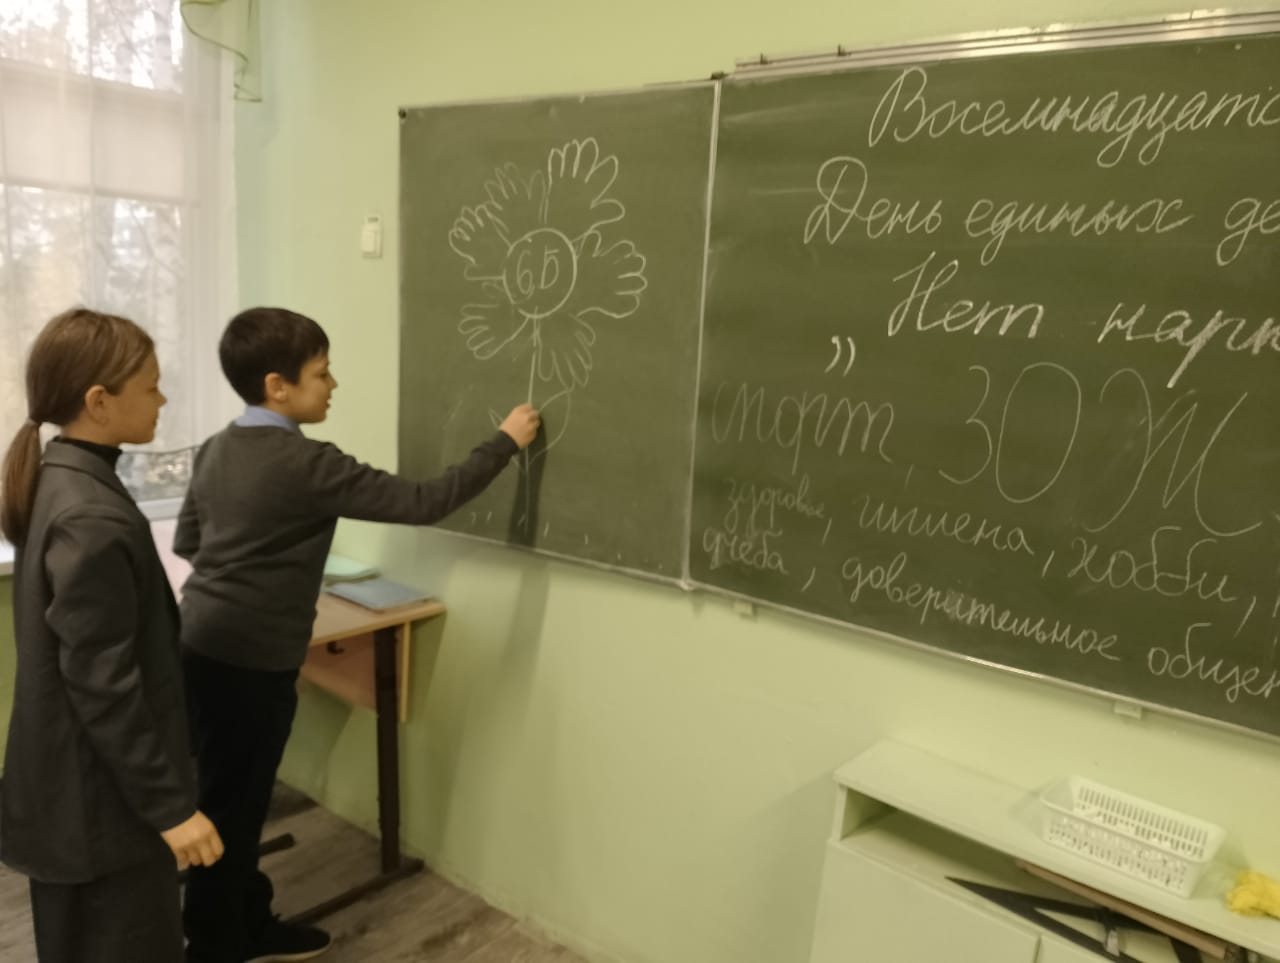 6Б
Восемнадцатс
День единых де
Нет нарк
"
спорт, ЗОЖ
здоровье, гигиена, хобби,
учёба, доверительное общен